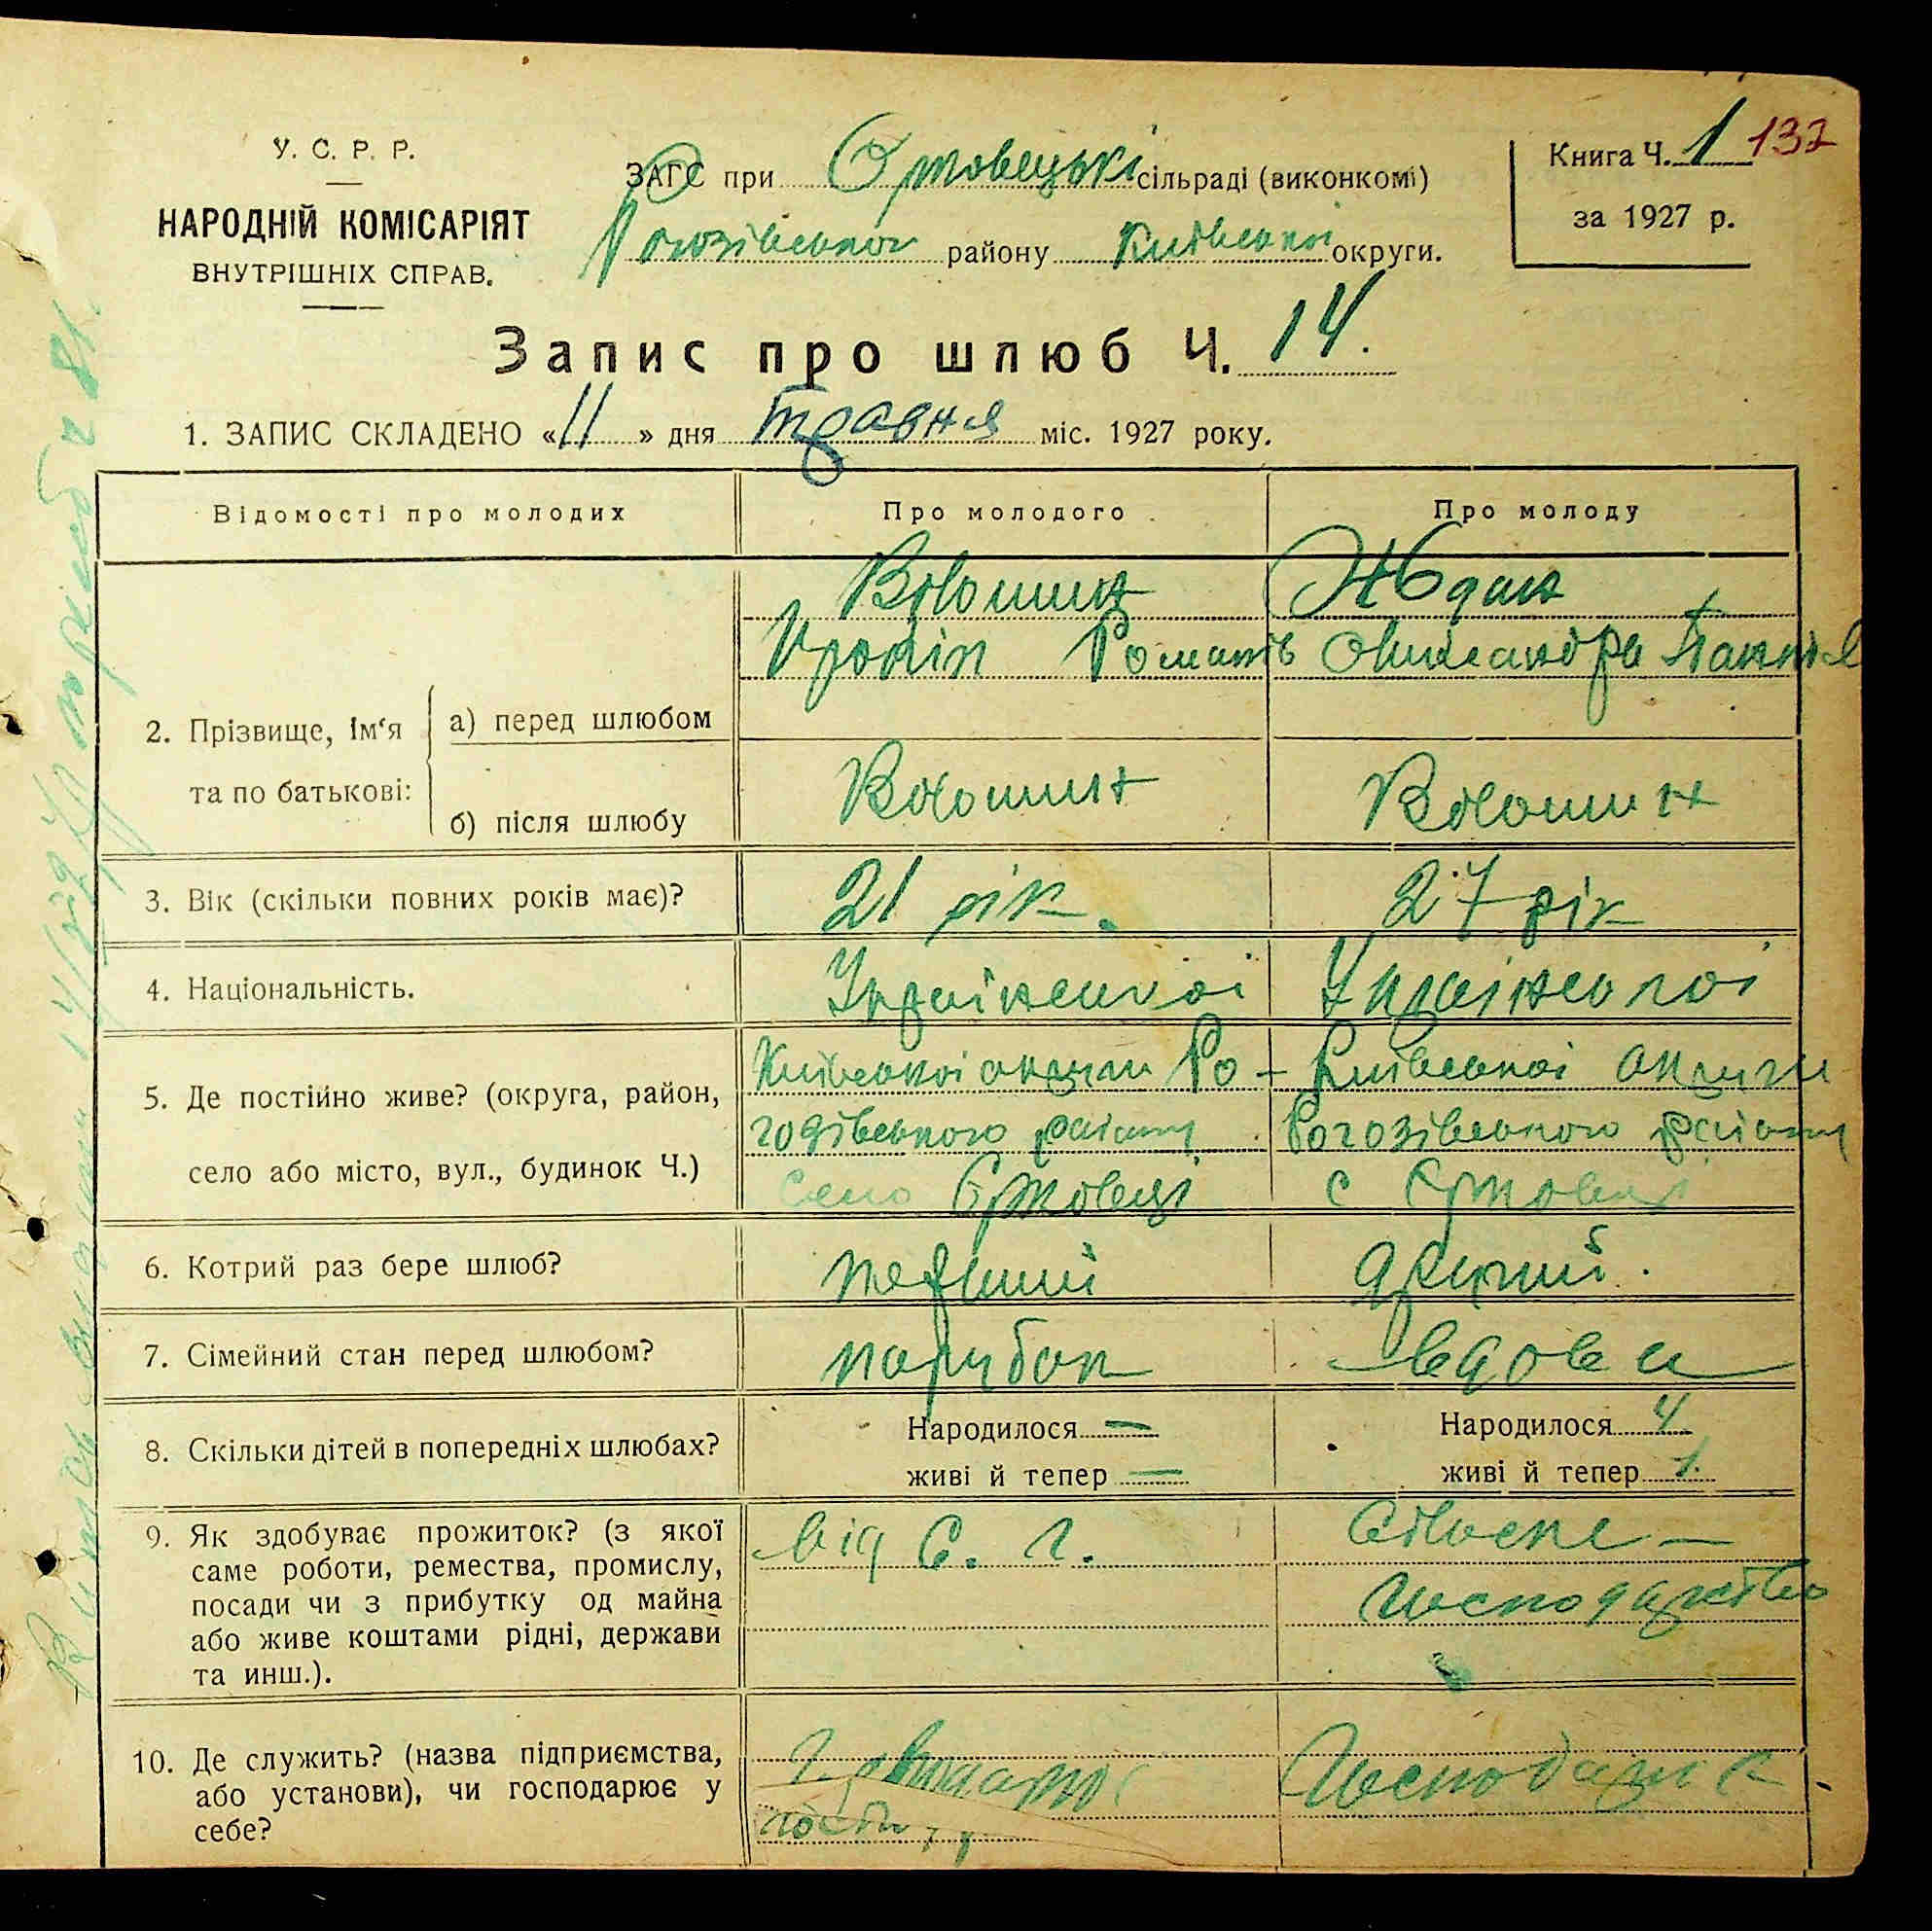 У. С. Р. Р.
НАРОДНІЙ КОМІСАРІЯТ
ВНУТРІШНІХ СПРАВ.
ЗАГС при сільраді (виконкомі)
району Київської округи.
Книга Ч. 1 132
за 1927 р.
Запис про шлюб Ч. 14.
1. ЗАПИС СКЛАДЕНО «11» дня травня міс. 1927 року.
Відомості про молодих Про молодого Про молоду
2. Прізвище, Ім‘я та по батькові:
а) перед шлюбом
Волошин
Романів
Ждан
Олександра
б) після шлюбу
Волошин
Волошин
3. Вік (скільки повних років має)?
21 рік.
27 рік
4. Національність.
Української
Української
5. Де постійно живе? (округа, район,
село або місто, вул., будинок Ч.)
Київської округи Ро-
гозівського району
село Єрковці
Київської округи
Рогозівського району
с Єрковці
6. Котрий раз бере шлюб?
перший
другий.
7. Сімейний стан перед шлюбом?
парубок
вдова
8. Скільки дітей в попередніх шлюбах?
Народилося —
живі й тепер —
Народилося 4
живі й тепер 1.
9. Як здобуває прожиток? (з якої
саме роботи, ремества, промислу,
посади чи з прибутку од майна
або живе коштами рідні, держави
та инш.).
від С. г.
Сільске —
господарство
10. Де служить? (назва підприємства,
або установи), чи господарює у
себе?